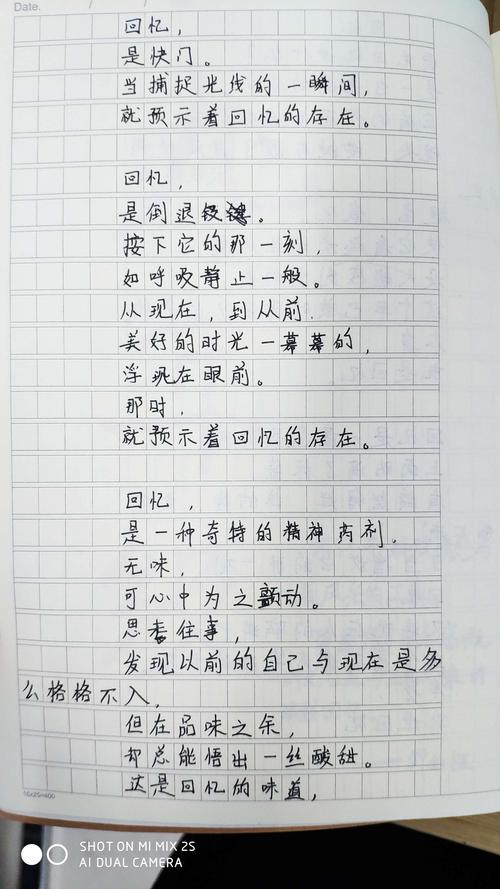 Date.
回忆，
是快门。
当捕捉光线的一瞬间，
就预示着回忆的存在。
回忆，
是倒退键。
按下它的那一刻，
如呼吸静止一般。
从现在，到从前.
美好的时光一幕幕的，
浮现在眼前。
那时，
就预示着回忆的存在。
回忆，
是一种奇特的精神药剂.
无味，
可心中为之颤动。
思往事，
发现以前的自己与现在是多
么格格不入，
但在品味之余，
却总能悟出一丝酸甜。
这是回忆的味道，
16x25=400
SHOT ON MI MIX 2S
AI DUAL CAMERA